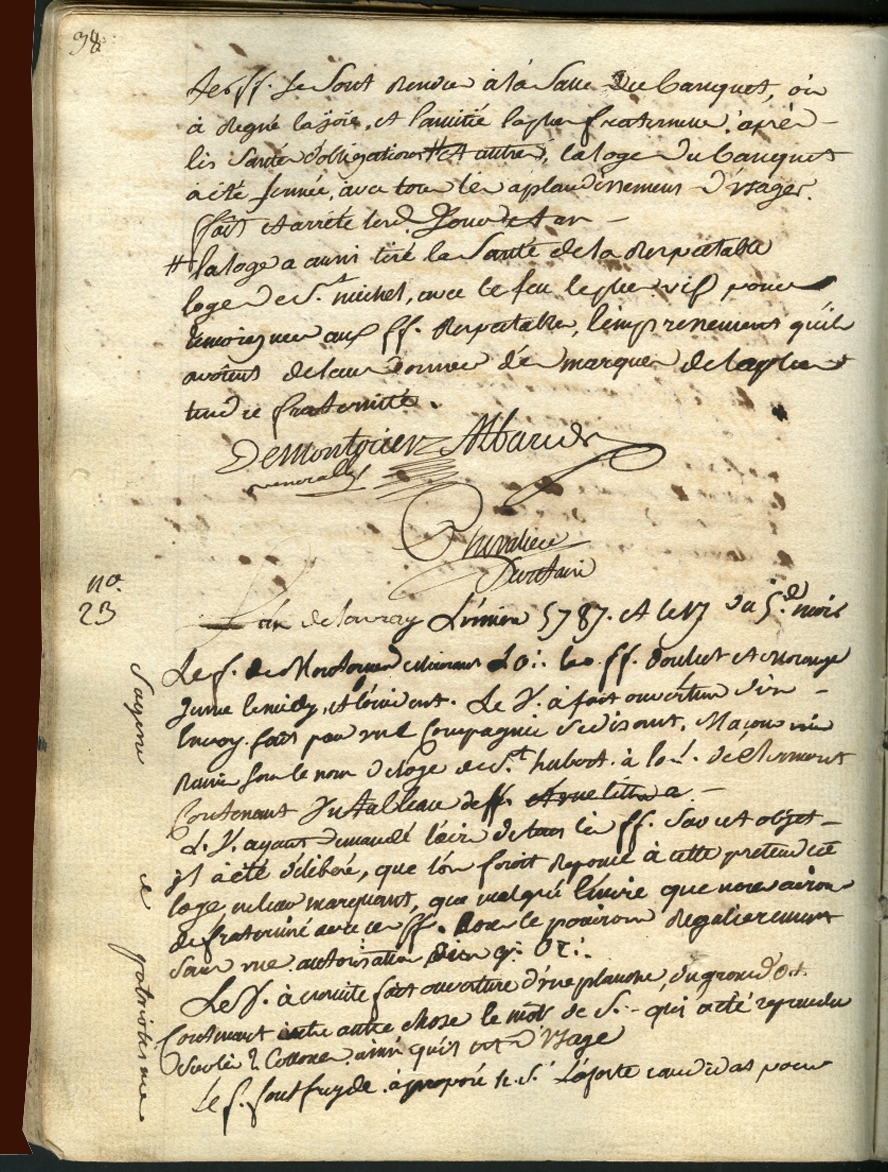 38
les ff. se sont rendu à la salle du banquet, où
à regné la joie, et l'amitié la plus fraternelle. après
les santés d'obligations # et autres, la loge du banquet
à été fermée, avec tous les aplaudissemens d'usages.
fait et arrêté les d. jour et an —
# la loge a aussi tiré la santé de la respectable
loge de St. michel, avec le feu le plus vif pour
témoigner aux ff. respectables, l'empressement qu'ils
avoient de leur donner des marques de la plus
tendre fraternité.
Demontgierz Albarede
venerable
Chevalier
Secretaire
no.
23
L'an de la vraye Lumiere 5787. et le 17 du 5.e mois
Le f. de Montorcier éclairant L'O∴ les ff. Boulict et
Jume le midy, et l'occident. Le V. à fait ouverture d'un
Envoy fait par une Compagnie se disant, Maçons
sous le nom de loge de St. hubert à l'o.t de Clermont
Contenant Un tableau de ff. et une lettre a —
L. V. ayant demandé l'avis de tous les ff. sur cet objet —
il à été déliberé, que l'on feroit reponse à cette pretendue
loge, en leur marquant, que malgré l'envie que nous avions
de fraterniser avec ces ff. nous le pouvions regulierement
sans une autorisation du g. O∴
Le V. à ensuite fait ouverture d'une planche, du grand O∴
Contenant entre autre chose le mot de S.·. qui a été repandu
sur les 2 Colonnes ainsi qu'il est d'usage
Le f. fontfreyde à proposé le S. Laporte candidat pour
Sagesse et patriotisme